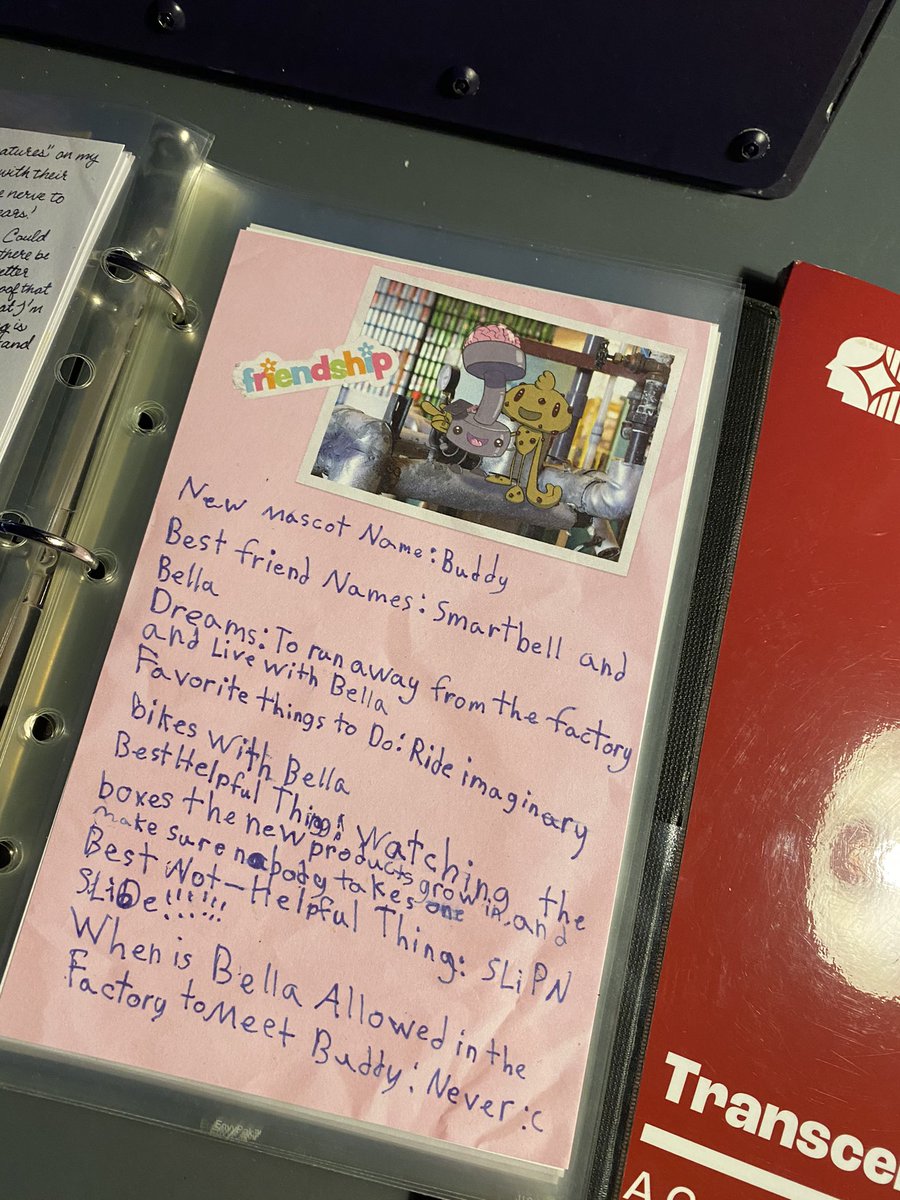 atures" on my
with their
e nerve to
ears.'
Could
there be
etter
oof that
at I'm
g is
and
friendship
New mascot Name: Buddy
Best friend Names: Smartbell and
Bella
Dreams: To run away from the factory
and Live with Bella
Favorite things to Do: Ride imaginary
bikes with Bella
Best Helpful Thing: Watching the
boxes the new products grow in, and
make sure nobody takes one
Best Not-Helpful Thing: SLiPN
SLiDe!!!!!!
When is Bella Allowed in the
Factory to Meet Buddy: Never :c
EnvyPak
Transce
A G